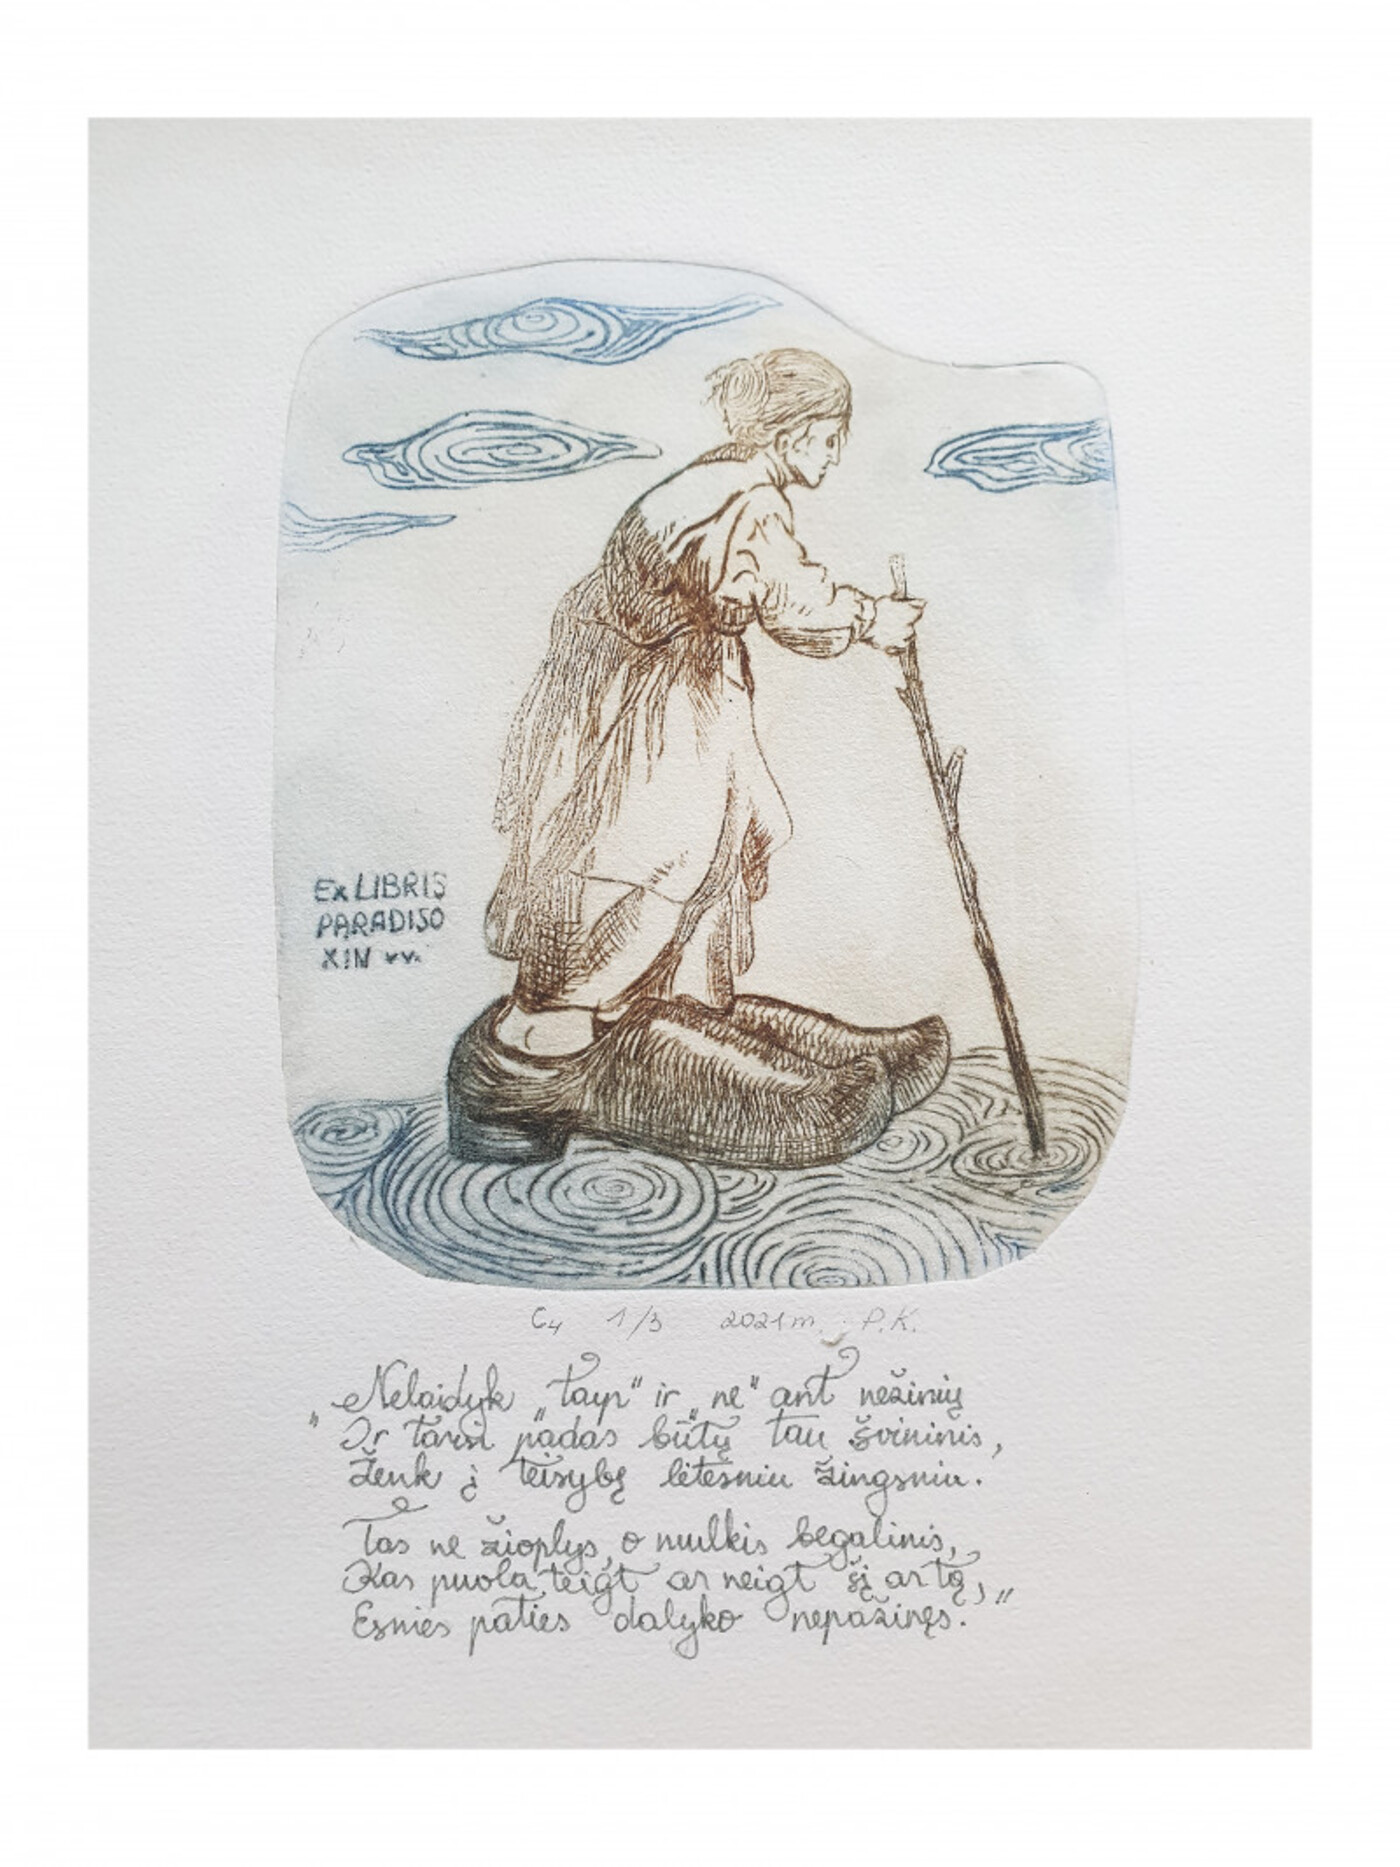 Ex LIBRIS
PARADISO
XIII
C4 1/3 2021 m. P.K.
„Nelaidyk „taip" ir „ne" ant nežinių
Ir tarsi padas būtų tau švininis,
Ženk į teisybę lėtesniu žingsniu.
Tas ne žioplys, o mulkis begalinis,
Kas puola teigt ar neigt šį ar tą,
Esmės paties dalyko nepažinęs."